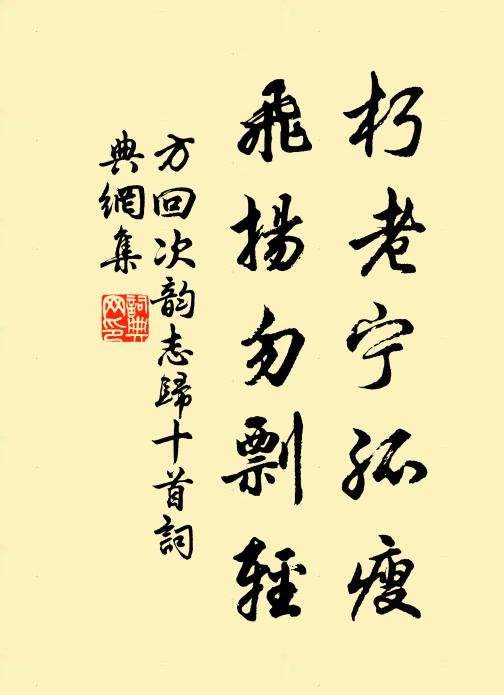 朽老宁孤瘦
飛揚勿剽輕
方回次韵志歸十首詞
典網集
詞典网印